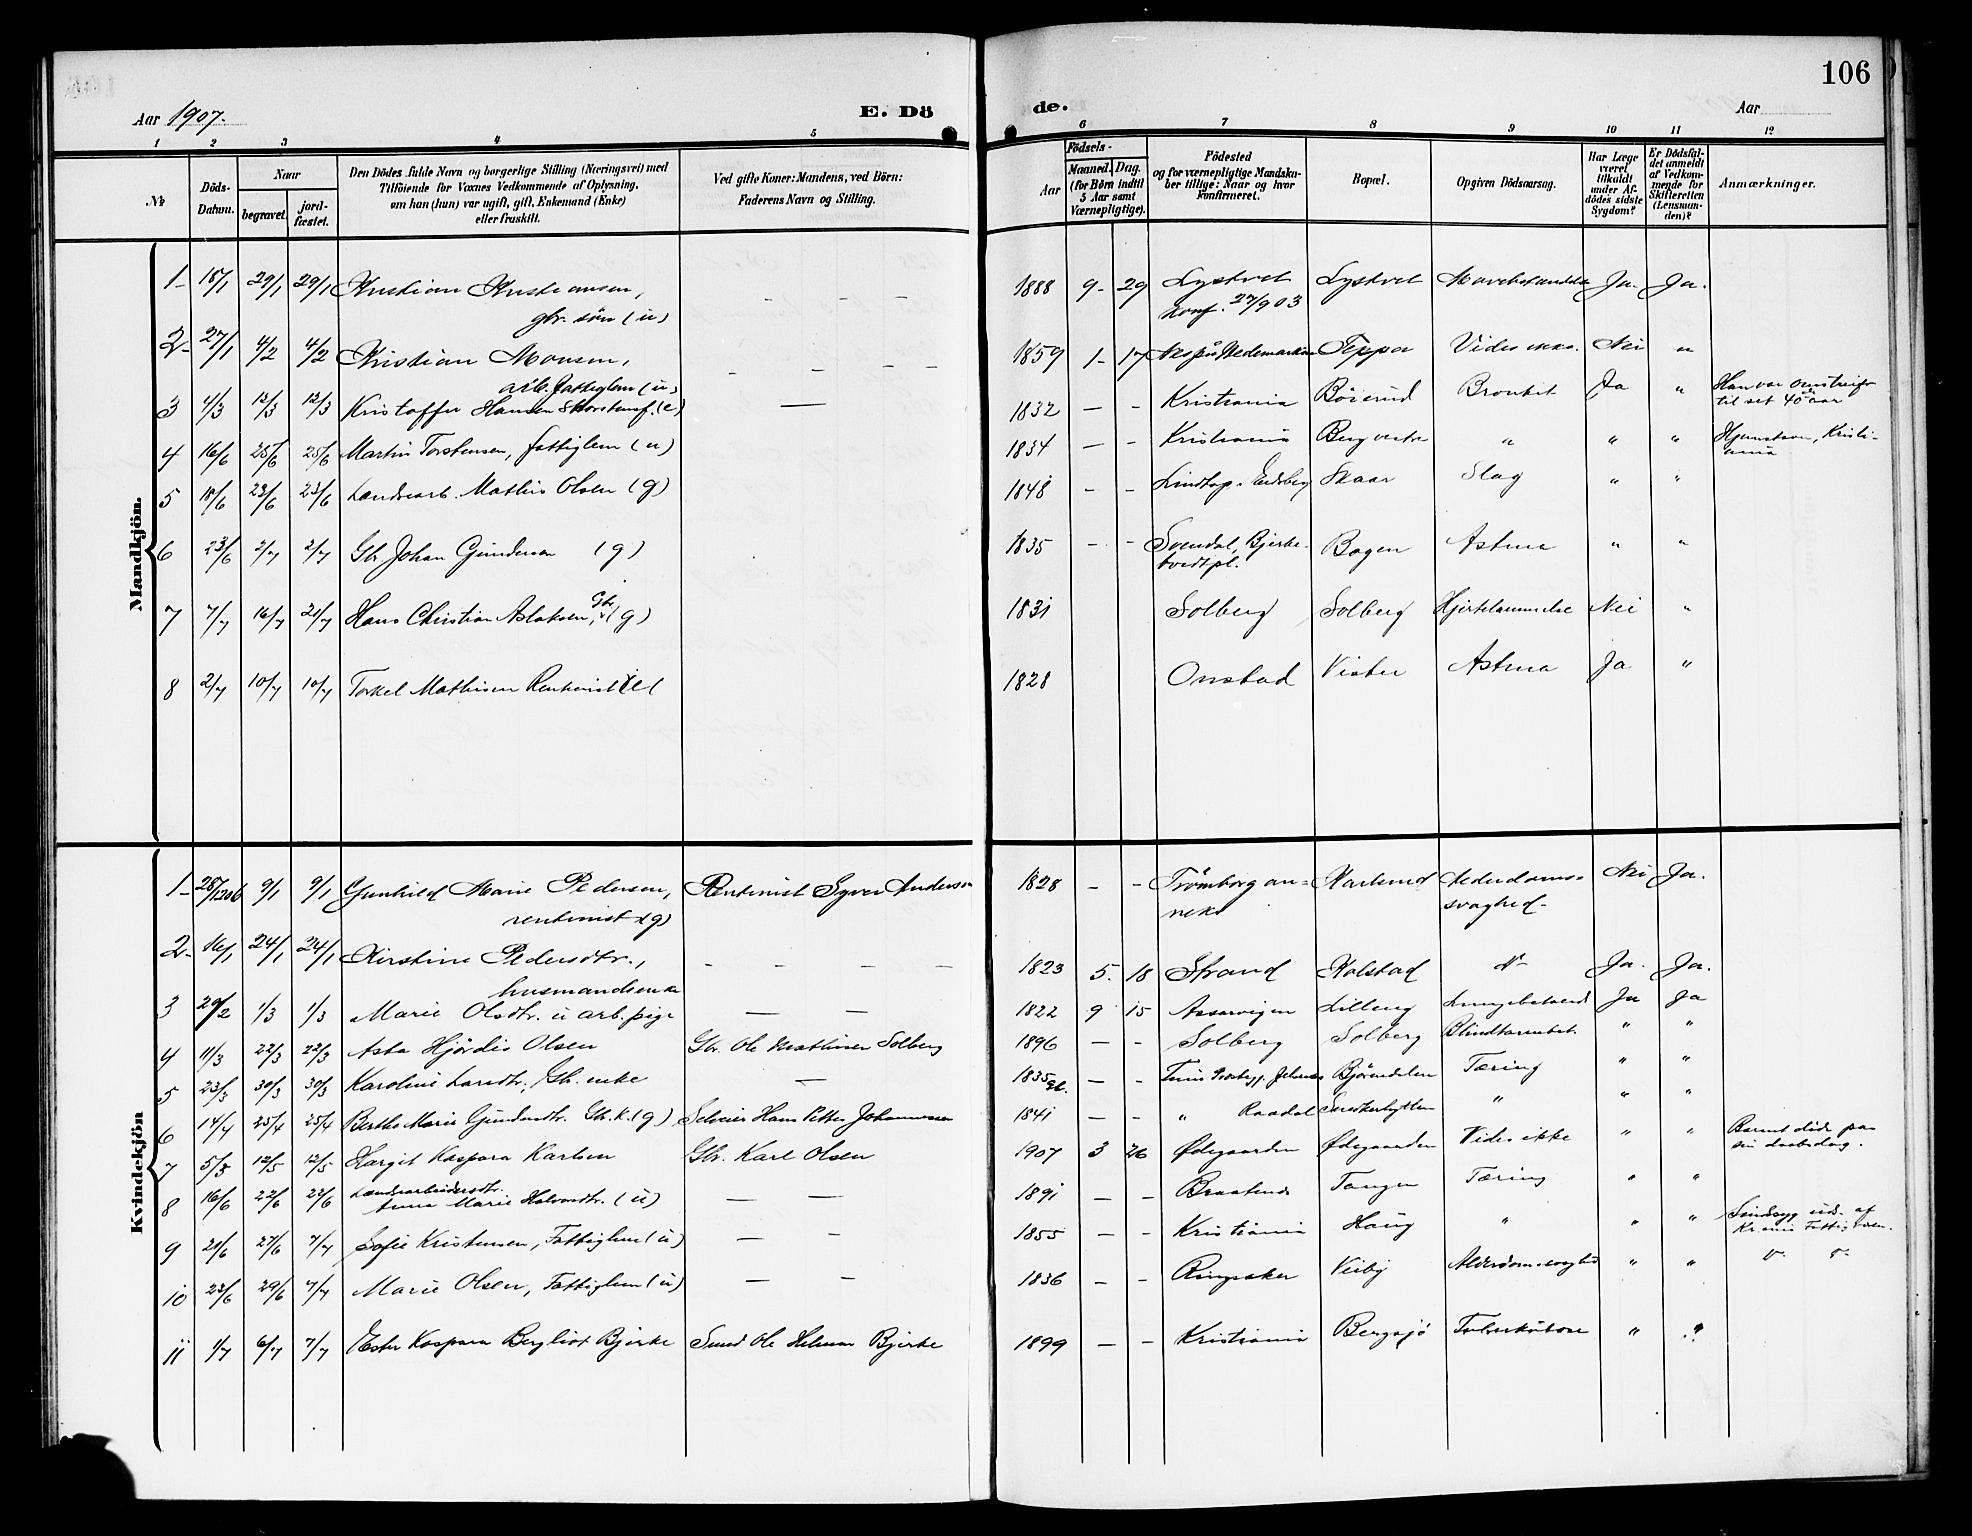 106
Aar 1907.
E. Dö
de.
Aar
1 2 3 4 5 6 7 8 9 10 11 12
№
Döds-Datum.
Naar
begravet.
jordfæstet.
Den Dödes fulde Navn og borgerlige Stilling (Næringsvei) med
Tilföiende for Voxnes Vedkommende af Oplysning,
om han (hun) var ugift, gift, Enkemand (Enke)
eller fraskilt.
Ved gifte Koner: Mandens, ved Börn:
Faderens Navn og Stilling.
Födsels-
Aar
Maaned. Dag.
(for Börn indtil
5 Aar samt
Værnepligtige).
Födested
og for værnepligtige Mandskaber tillige: Naar og hvor
konfirmeret.
Bopæl.
Opgiven Dödsaarsag.
Har Læge
været
tilkaldt
under Afdödes sidste
Sygdom?
Er Dödsfaldet anmeldt
af Vedkommende for
Skifteretten
(Lensmanden)?
Anmærkninger.
Mandkjön.
1- 18/1 29/1 29/1 Kristian Kristiansen, - - - 1888 9- 29 Lystvet Lystvet Ja. Ja.
gbr. søn (u) konf. 27/9 03
2- 27/1 4/2 4/2 Kristian Monsen, - - - - 1859 1- 17 Teppa Vides ikke. Nei "
arb. Fattiglem (u)
3 4/3 13/3 13/3 Kristoffer Hansen (e) — 1832 - - Kristiania Böierud Bronkit Ja " Han var omstreifer
til set 40 aar
4 16/6 25/6 25/6 Martin Torstensen, fattiglem (u) 1834 - - Kristiania Berg vestre " " " Kristiania
5 18/6 23/6 23/6 Landearb. Mathis Olsen (g) 1848 - - Eidsberg Skaar Slag " "
6 23/6 2/7 2/7 Gbr. Johan Gundersen (g) 1835 - - Svendal, Bjerke- Bogen Astma " "
tvedtpl.
7 7/7 16/7 21/7 Hans Christian Aslaksen, Gbr. (g) 1831 Solberg Solberg Hjertelammelse Nei "
8 2/7 10/7 10/7 Torkel Mathisen Rentenist (e) 1828 Onstad Vister Astma Ja "
Kvindekjön
1- 28/12 06 9/1 9/1 Gunhild Marie Pedersen, Rentenist Syver Andersen 1828 - - Trömborg an- Karlsrud Alderdoms- Nei Ja.
rentenist (g) neks svaghed-
2- 16/1 24/1 24/1 Kirstine Pedersdtr., - - - - 1823 5. 18 Strand Kolstad Ja. Ja.
husmandsenke
3 20/2 1/3 1/3 Marie Olsdtr. u arb. pige — — 1822 9 15 Aasarvigen Lilleng Lungebetænd Ja Ja
4 11/3 22/3 22/3 Asta Hjördis Olsen Gbr. Ole Mathisen Solberg 1896 - - Solberg Solberg Blindtarmbet. " "
5 23/3 30/3 30/3 Karoline Larsdtr., Gb. enke — 1835 - - Björendalen Tæring " "
6 14/4 25/4 25/4 Berthe Marie Gundersdtr. Gb. k. (g) Selveier Hans Petter Johannessen 1841 - - " Raadal " " "
7 5/5 12/5 12/5 Margit Kaspara Karlsen Gbr. Karl Olsen 1907 3 26 Ødegaarden Ødegaarden Vides ikke " " Barnet døde paa
sin daabsdag.
8 16/6 22/6 22/6 Landearbeidersdtr. — — 1891 - - Braatene Tangen Tæring " "
Anna Marie Halvorsdtr. (u)
9 21/6 27/6 7/7 Sofie Kristensen, Fattiglem (u) — — 1855 - - Kristiania Haug " " " Sindssyg ud. af
Kr.ania Fattigvæsen.
10 23/6 29/6 7/7 Marie Olsen, Fattiglem (u) — — 1836 - - Ringsaker Veiby Alderdomssvaghed " "
11 1/7 6/7 7/7 Ester Kaspara Bergliot Bjerke Smed Ole Helmer Bjerke 1899 - - Kristiania Bergsjö Tuberkulose " "